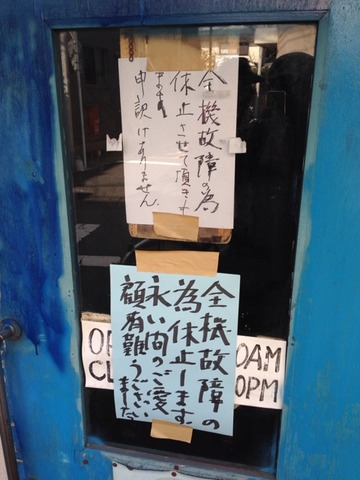 全機故障の為
休止させて頂きます
申訳けありません
全機故障の
為休止します
永い間のご愛
顧有難うござい
ました
OP
CL
0AM
0PM